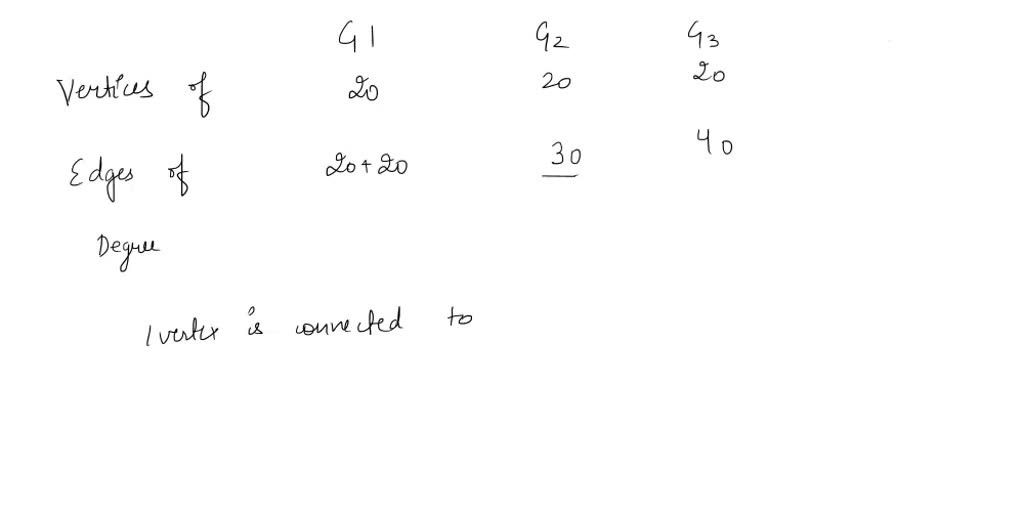 G1 G2 G3
Vertices of 20 20 20
Edges of 20+20 30 40
Degree
1 vertex is connected to